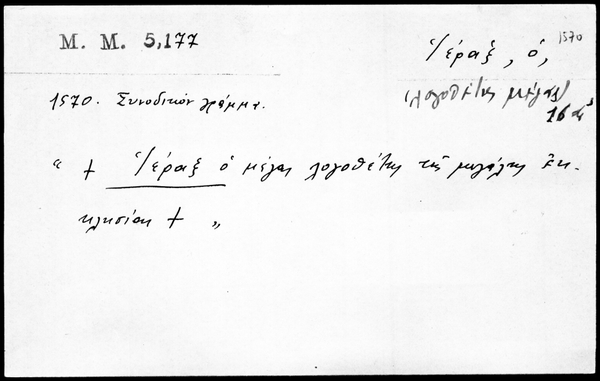 M. M. 5,177
Ἱέραξ, ὁ, 1570
(λογοθέτης μέγας)
16 αἰ.
1570. Συνοδικὸν γράμμα.
“ + Ἱέραξ ὁ μέγας λογοθέτης τῆς μεγάλης Ἐκ-
κλησίας + „